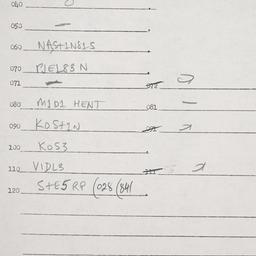 040
050 —
060 NASTINSIS
070 PIEL83N
071 —
080 MIDI HENT 081 —
090 KOSTIN
100 KOS3
110 VIDL3
120 STE5RP (028 (841